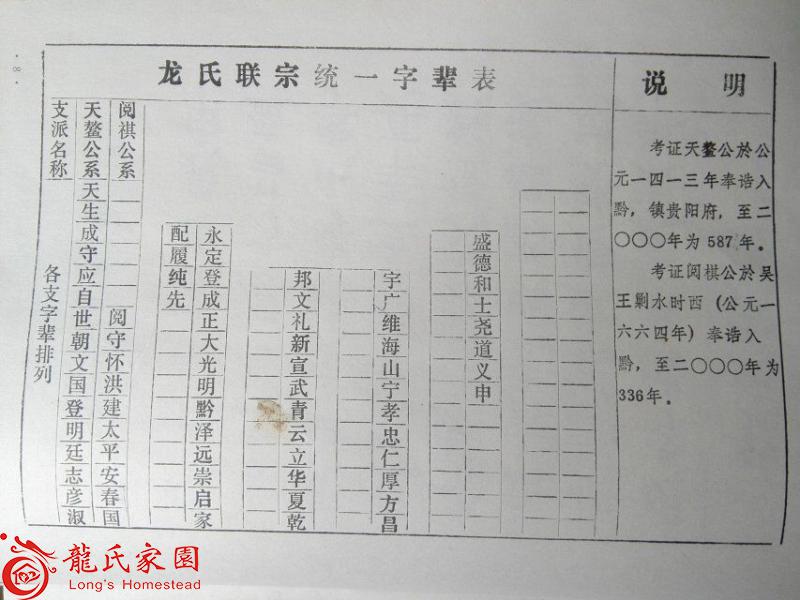 ·8·
龙氏联宗统一字辈表
支派名称 各支字辈排列
天鳌公系 天生成守应自世朝文国登明廷志彦淑
阅祺公系 阅守怀洪建太平安春国
配履纯先
永定登成正大光明黔泽远崇启家
邦文礼新宣武青云立华夏乾
宇广维海山宁孝忠仁厚方昌
盛德和士尧道义申
说 明
考证天鳌公於公
元一四一三年奉诰入
黔，镇贵阳府，至二
〇〇〇年为587年。
考证阅棋公於吴
王剿水时西（公元一
六六四年）奉诰入
黔，至二〇〇〇年为
336年。
龍氏家園
Long's Homestead